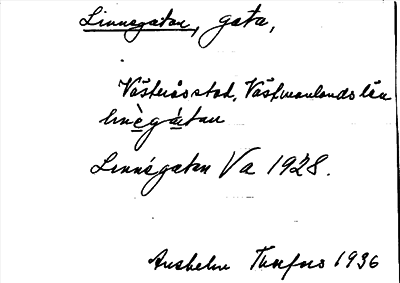 Linnegatan, gata,
Västerås stad, Västmanlands län
linègátan
Linnégatan Va 1928.
1936